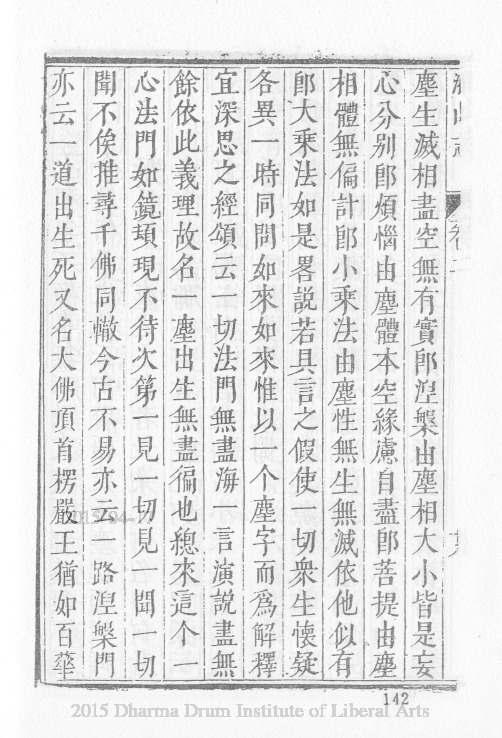 塵生滅相盡空無有實郎涅槃由塵相大小皆是妄
心分別郎煩惱由塵體本空緣慮自盡郎菩提由塵
相體無偏計郎小乘法由塵性無生無滅依他似有
郎大乘法如是畧說若具言之假使一切衆生懷疑
各異一時同問如來如來惟以一个塵字而爲解釋
宜深思之經頌云一切法門無盡海一言演說盡無
餘依此義理故名一塵出生無盡徧也總來這个一
心法門如鏡頓現不待次第一見一切見一聞一切
聞不俟推尋千佛同轍今古不易亦云一路涅槃門
亦云一道出生死又名大佛頂首楞嚴王猶如百華
142
2015 Dharma Drum Institute of Liberal Arts